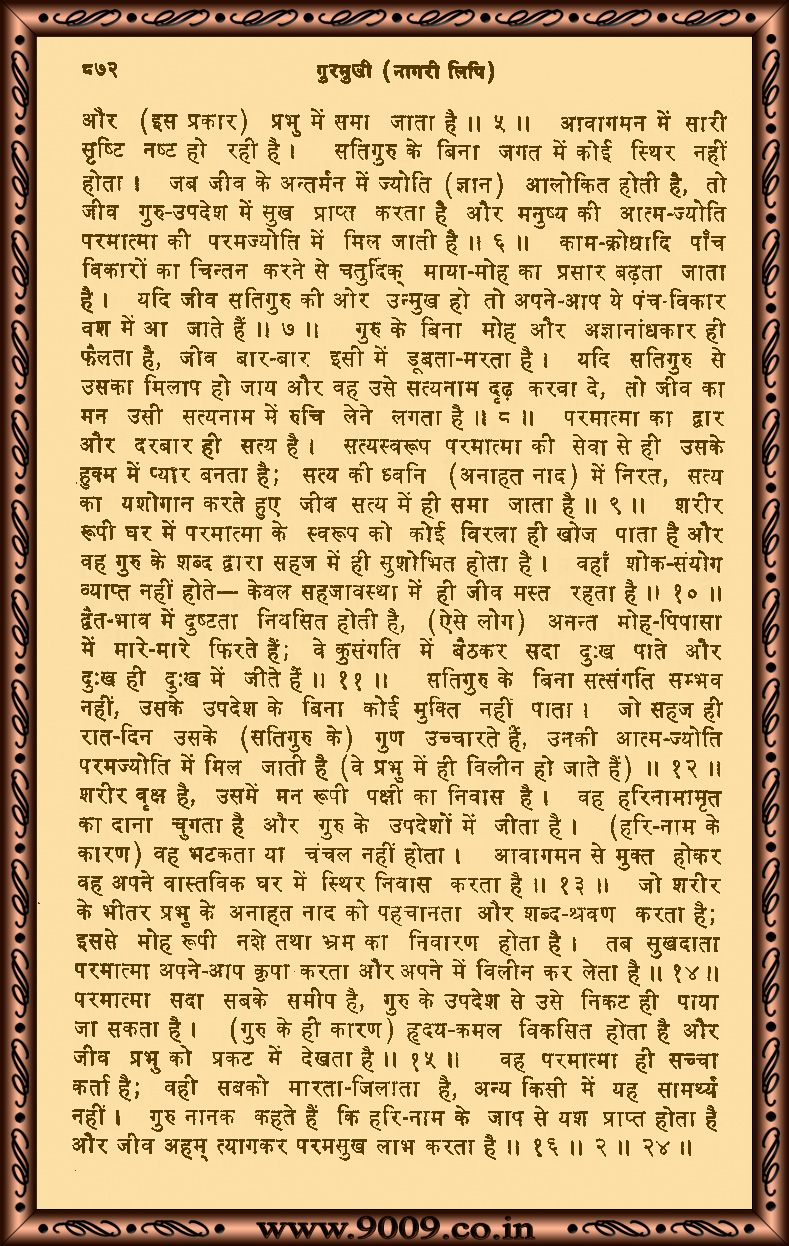 ८७२ गुरमुखी (नागरी लिपि)
और (इस प्रकार) प्रभु में समा जाता है ॥ ५ ॥ आवागमन में सारी
सृष्टि नष्ट हो रही है। सतिगुरु के बिना जगत में कोई स्थिर नहीं
होता। जब जीव के अन्तर्मन में ज्योति (ज्ञान) आलोकित होती है, तो
जीव गुरु-उपदेश में सुख प्राप्त करता है और मनुष्य की आत्म-ज्योति
परमात्मा की परमज्योति में मिल जाती है ॥ ६ ॥ काम-क्रोधादि पाँच
विकारों का चिन्तन करने से चतुर्दिक् माया-मोह का प्रसार बढ़ता जाता
है। यदि जीव सतिगुरु की ओर उन्मुख हो तो अपने-आप ये पंच-विकार
वश में आ जाते हैं ॥ ७ ॥ गुरु के बिना मोह और अज्ञानांधकार ही
फैलता है, जीव बार-बार इसी में डूबता-मरता है। यदि सतिगुरु से
उसका मिलाप हो जाय और वह उसे सत्यनाम दृढ़ करवा दे, तो जीव का
मन उसी सत्यनाम में रुचि लेने लगता है ॥ ८ ॥ परमात्मा का द्वार
और दरबार ही सत्य है। सत्यस्वरूप परमात्मा की सेवा से ही उसके
हुक्म में प्यार बनता है; सत्य की ध्वनि (अनाहत नाद) में निरत, सत्य
का यशोगान करते हुए जीव सत्य में ही समा जाता है ॥ ९ ॥ शरीर
रूपी घर में परमात्मा के स्वरूप को कोई विरला ही खोज पाता है और
वह गुरु के शब्द द्वारा सहज में ही सुशोभित होता है। वहाँ शोक-संयोग
व्याप्त नहीं होते— केवल सहजावस्था में ही जीव मस्त रहता है ॥ १० ॥
द्वैत-भाव में दुष्टता नियसित होती है, (ऐसे लोग) अनन्त मोह-पिपासा
में मारे-मारे फिरते हैं; वे कुसंगति में बैठकर सदा दुःख पाते और
दुःख ही दुःख में जीते हैं ॥ ११ ॥ सतिगुरु के बिना सत्संगति सम्भव
नहीं, उसके उपदेश के बिना कोई मुक्ति नहीं पाता। जो सहज ही
रात-दिन उसके (सतिगुरु के) गुण उच्चारते हैं, उनकी आत्म-ज्योति
परमज्योति में मिल जाती है (वे प्रभु में ही विलीन हो जाते हैं) ॥ १२ ॥
शरीर वृक्ष है, उसमें मन रूपी पक्षी का निवास है। वह हरिनामामृत
का दाना चुगता है और गुरु के उपदेशों में जीता है। (हरि-नाम के
कारण) वह भटकता या चंचल नहीं होता। आवागमन से मुक्त होकर
वह अपने वास्तविक घर में स्थिर निवास करता है ॥ १३ ॥ जो शरीर
के भीतर प्रभु के अनाहत नाद को पहचानता और शब्द-श्रवण करता है;
इससे मोह रूपी नशे तथा भ्रम का निवारण होता है। तब सुखदाता
परमात्मा अपने-आप कृपा करता और अपने में विलीन कर लेता है ॥ १४ ॥
परमात्मा सदा सबके समीप है, गुरु के उपदेश से उसे निकट ही पाया
जा सकता है। (गुरु के ही कारण) हृदय-कमल विकसित होता है और
जीव प्रभु को प्रकट में देखता है ॥ १५ ॥ वह परमात्मा ही सच्चा
कर्ता है; वही सबको मारता-जिलाता है, अन्य किसी में यह सामर्थ्य
नहीं। गुरु नानक कहते हैं कि हरि-नाम के जाप से यश प्राप्त होता है
और जीव अहम् त्यागकर परमसुख लाभ करता है ॥ १६ ॥ २ ॥ २४ ॥
www.9009.co.in